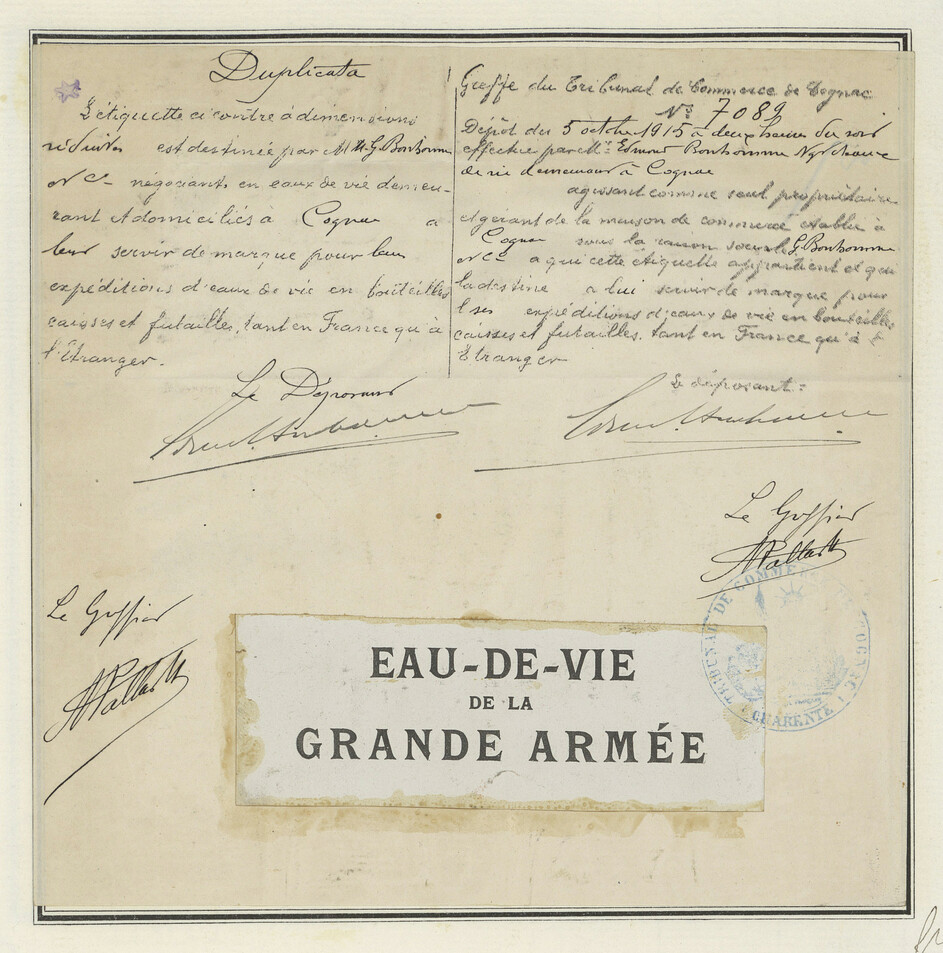 Duplicata
L'étiquette ci contre à dimensions
réduites est destinée par MM G. Bonhomme
& Cie négociants en eaux de vie demeu-
rant et domiciliés à Cognac à
leur servir de marque pour leurs
expéditions d'eaux de vie en bouteilles
caisses et futailles, tant en France qu'à
l'Étranger.
Le Déposant
Greffe du Tribunal de Commerce de Cognac
N° 7089
Dépôt du 5 octobre 1915 à deux heures du soir
effectué par Mr Edmond Bonhomme Nég
de vie demeurant à Cognac
agissant comme seul propriétaire
et gérant de la maison de commerce établie à
Cognac sous la raison sociale G. Bonhomme
& Cie à qui cette étiquette appartient et qui
la destine à lui servir de marque pour
ses expéditions d'eaux de vie en bouteilles
caisses et futailles, tant en France qu'à l'
Etranger
Le déposant:
Le Greffier
TRIBUNAL DE COMMERCE DE COGNAC
CHARENTE
Le Greffier
EAU-DE-VIE
DE LA
GRANDE ARMÉE